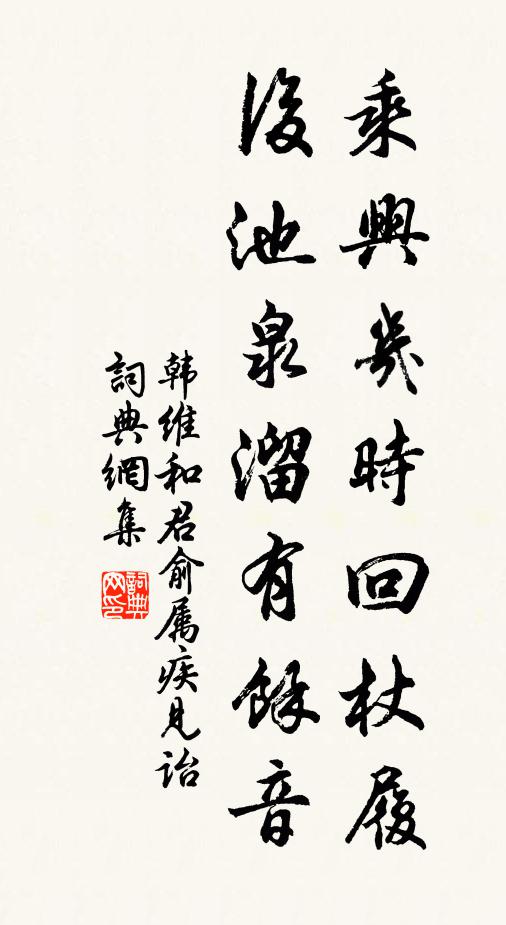 乘興幾時回杖履
後池泉溜有餘音
韩维和君俞屬疾見詒
詞典網集
詞典网印